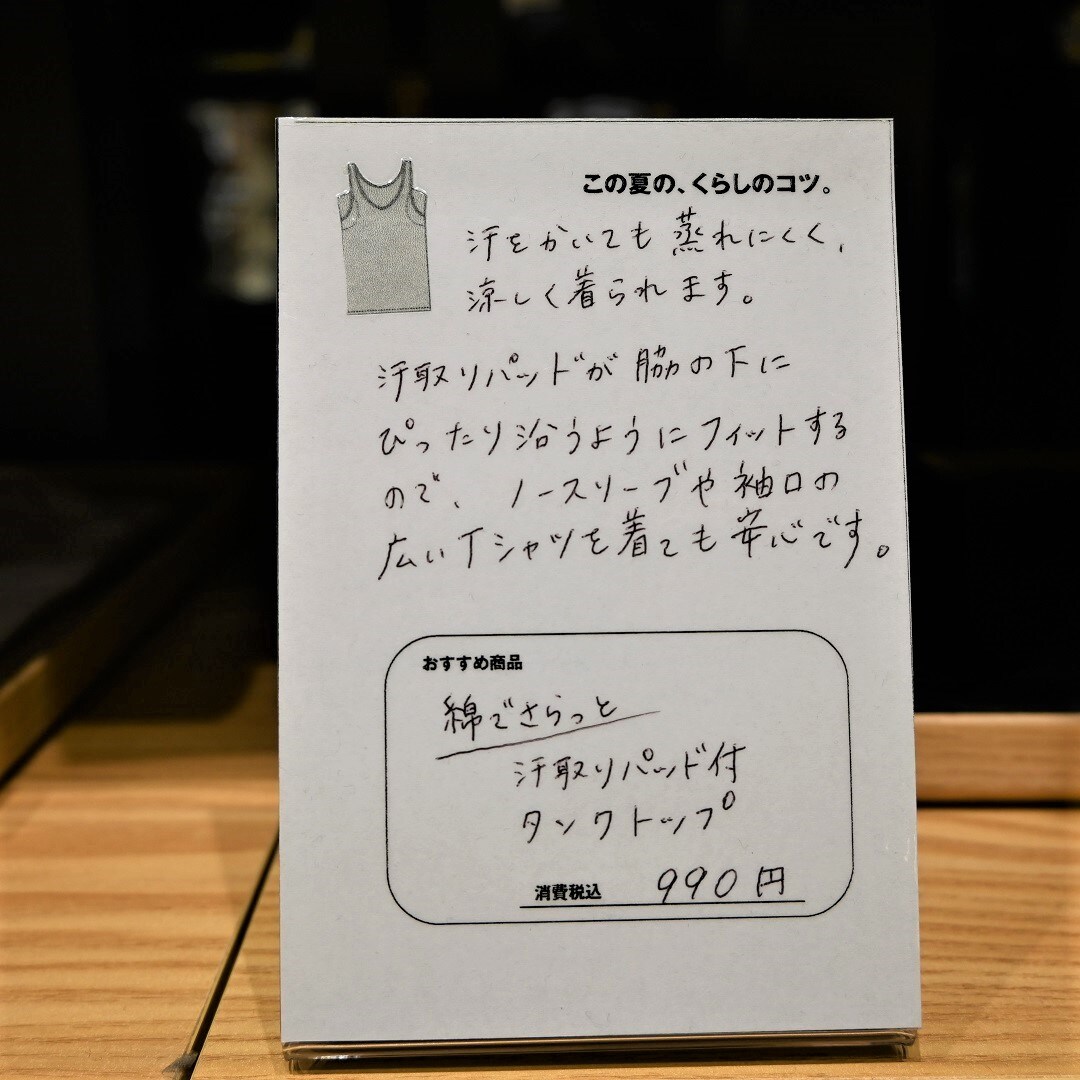 この夏の、くらしのコツ。
汗をかいても蒸れにくく、
涼しく着られます。
汗取りパッドが脇の下に
ぴったり沿うようにフィットする
ので、ノースリーブや袖口の
広いTシャツを着ても安心です。
おすすめ商品
綿でさらっと
汗取りパッド付
タンクトップ
消費税込 990円